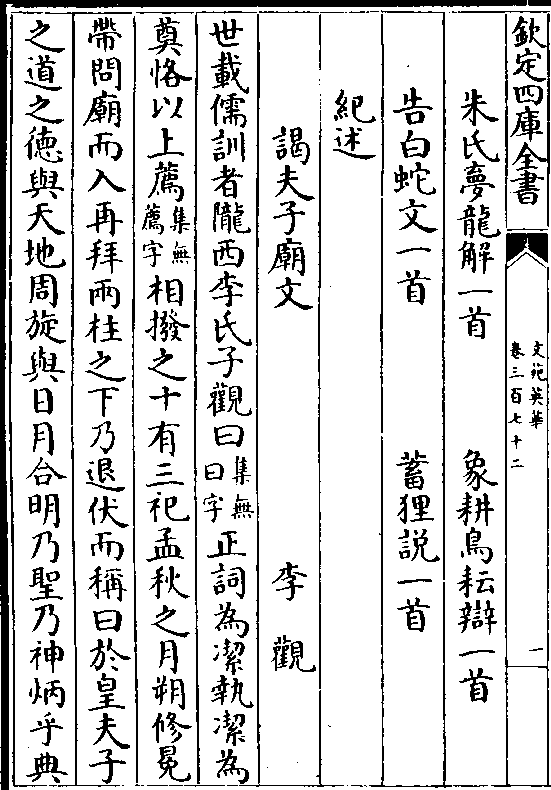 欽定四庫全書
文苑英華
卷三百七十二
一
朱氏夢龍解一首 象耕鳥耘辯一首
告白蛇文一首 蓄狸說一首
紀述
謁夫子廟文 李觀
世載儒訓者隴西李氏子觀曰集無曰字正詞為潔執潔為
奠恪以上薦集無薦字相撥之十有三祀孟秋之月朔修冕
帶問廟而入再拜兩柱之下乃退伏而稱曰於皇夫子
之道之德與天地周旋與日月合明乃聖乃神炳乎典